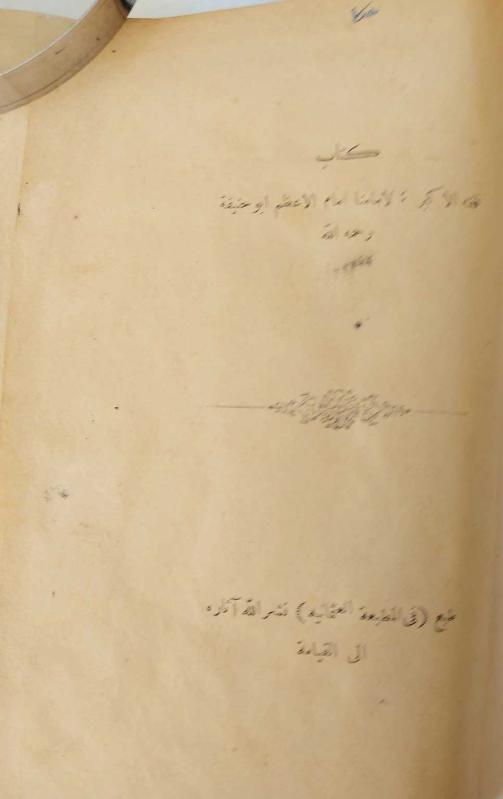 كتاب
الاكبر : لامامنا امام الاعظم ابو حنيفة
رحمه الله
طبع (فى المطبعة العثمانيه) نشر الله آثاره
الى القيامة